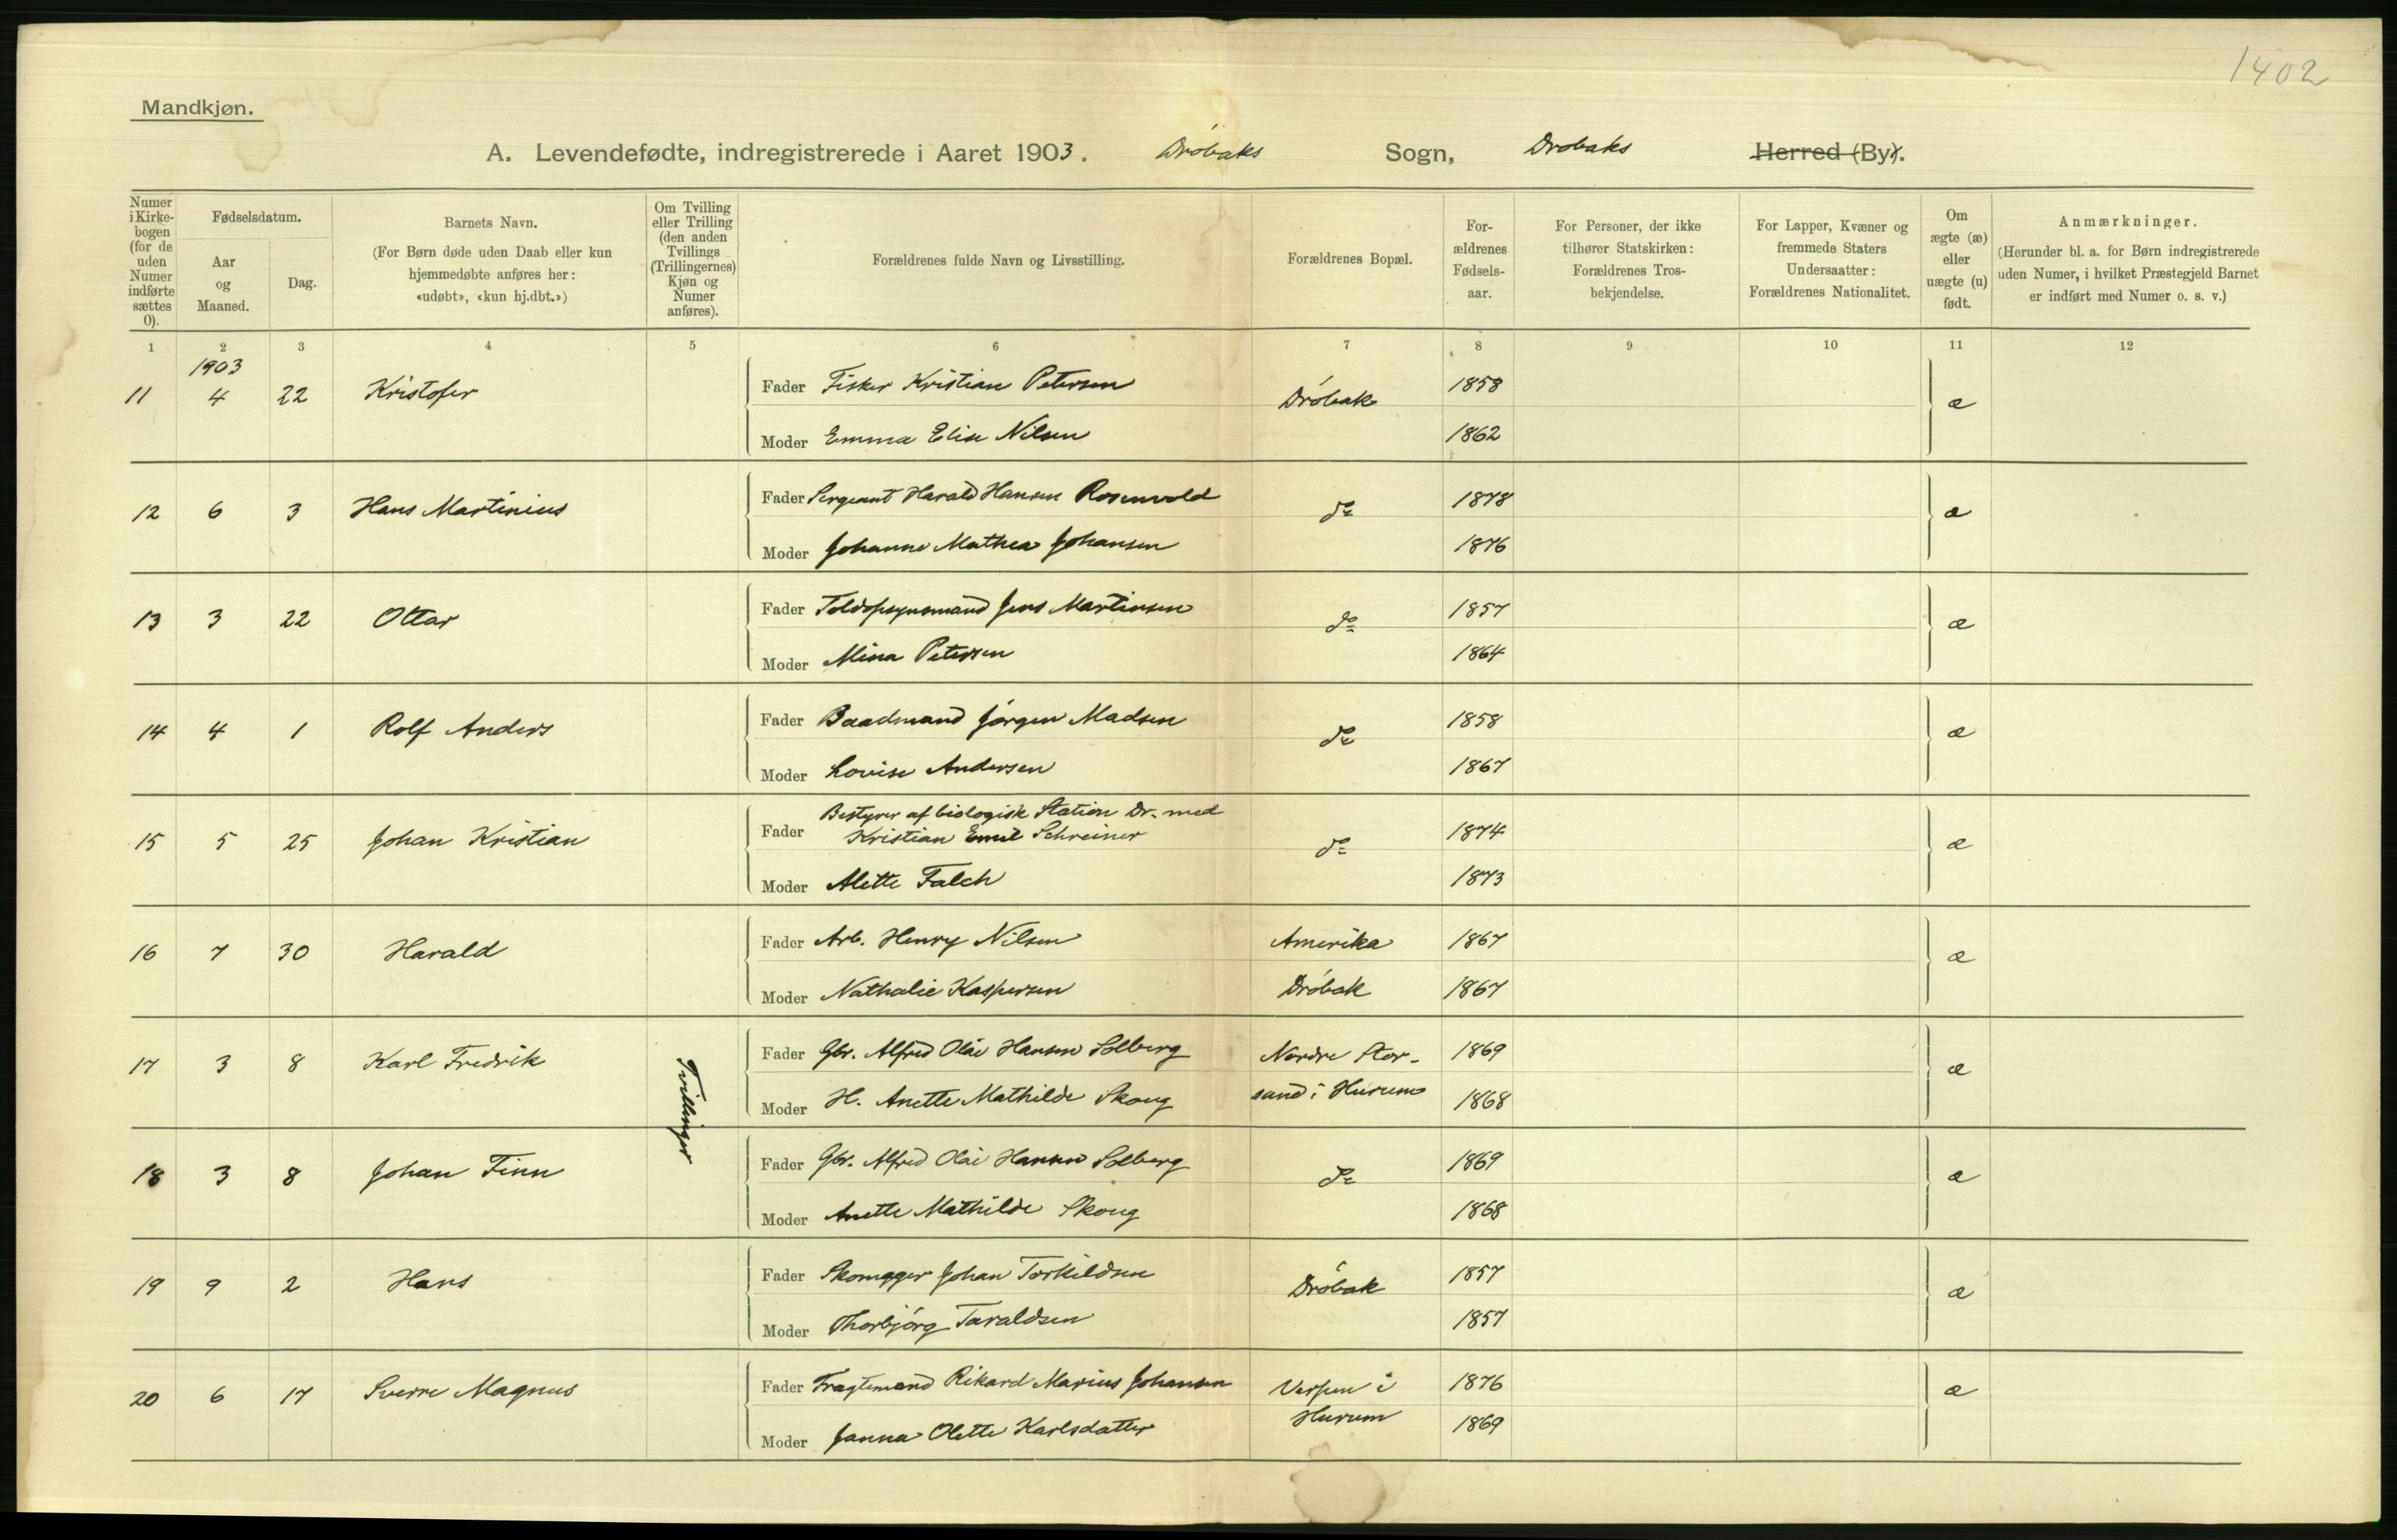 1402
Mandkjøn.
A. Levendefødte, indregistrerede i Aaret 1903. Drøbaks Sogn, Drøbaks Herred (By).
Numer i Kirkebogen (for de uden Numer indførte sættes 0).
Fødselsdatum.
Aar og Maaned.
Dag.
Barnets Navn.
(For Børn døde uden Daab eller kun hjemmedøbte anføres her: «udøbt», «kun hj.dbt.»)
Om Tvilling eller Trilling (den anden Tvillings (Trillingernes) Kjøn og Numer anføres).
Forældrenes fulde Navn og Livsstilling.
Forældrenes Bopæl.
Forældrenes Fødselsaar.
For Personer, der ikke tilhører Statskirken: Forældrenes Trosbekjendelse.
For Lapper, Kvæner og fremmede Staters Undersaatter: Forældrenes Nationalitet.
Om ægte (æ) eller uægte (u) født.
Anmærkninger.
(Herunder bl. a. for Børn indregistrerede uden Numer, i hvilket Præstegjeld Barnet er indført med Numer o. s. v.)
1 2 3 4 5 6 7 8 9 10 11 12
1903
11 4 22 Kristofer Fader Fisker Kristian Petersen Drøbak 1858 æ
Moder Emma Elise Nilsen 1862
12 6 3 Hans Martinius Fader Sergeant Harald Hansen Rosenvold do 1878 æ
Moder Johanne Mathea Johansen 1876
13 3 22 Ottar Fader Toldopsynsmand Jens Martinsen do 1857 æ
Moder Mina Petersen 1864
14 4 1 Rolf Anders Fader Baadmand Jørgen Madsen do 1858 æ
Moder Lovise Andersen 1867
15 5 25 Johan Kristian Fader Bestyrer af biologisk Station Dr. med
Kristian Emil Schreiner do 1874 æ
Moder Alette Falch 1873
16 7 30 Harald Fader Arb. Henry Nilsen Amerika 1867 æ
Moder Nathalie Kaspersen Drøbak 1867
17 3 8 Karl Fredrik Tvillinger Fader Gbr. Alfred Olai Hansen Solberg Nordre Stor- 1869 æ
Moder H. Anette Mathilde Skoug sand i Hurum 1868
18 3 8 Johan Finn Fader Gbr. Alfred Olai Hansen Solberg do 1869 æ
Moder Anette Mathilde Skoug 1868
19 9 2 Hans Fader Skomager Johan Torkildsen Drøbak 1857 æ
Moder Thorbjørg Taraldsen 1857
20 6 17 Sverre Magnus Fader Fragtemand Rikard Marius Johansen Verpen i 1876 æ
Moder Janna Olette Karlsdatter Hurum 1869